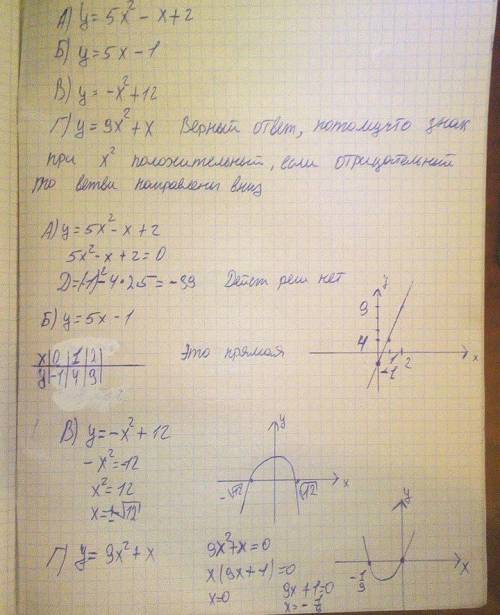 А) y = 5x² - x + 2
Б) y = 5x - 1
В) y = -x² + 12
Г) y = 9x² + x Верный ответ, потому что знак
при x² положительный, если отрицательний
то ветви направлены вниз
А) y = 5x² - x + 2
5x² - x + 2 = 0
D = (-1)² - 4 * 2 5 = -39 Действ реш нет
Б) y = 5x - 1
x | 0 | 1 | 2
y | -1 | 4 | 9
Это прямая
y
9
4
1 2 x
-1
В) y = -x² + 12
-x² = -12
x² = 12
x = ±√12
y
-√12 √12 x
Г) y = 9x² + x
9x² + x = 0
x(9x + 1) = 0
x = 0 9x + 1 = 0
x = -1/9
y
-1/9 x